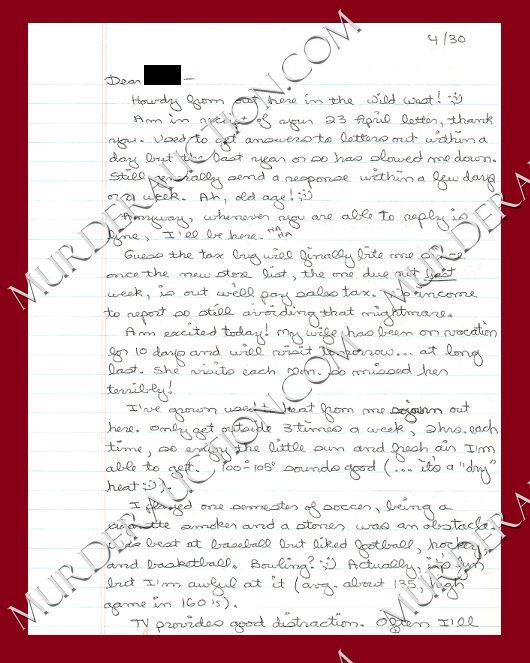 4/30
Dear —
Howdy from out here in the wild west! :)
Am in receipt of your 23 April letter, thank
you. Used to get answers to letters out within a
day but the last year or so has slowed me down.
Still generally send a response within a few days
or a week. Ah, old age! :)
Anyway, whenever you are able to reply is
fine, I'll be here. HA HA
Guess the tax bug will finally bite me
once the new store list, the one due out last
week, is out we'll pay sales tax. No income
to report so still avoiding that nightmare.
Am excited today! My wife has been on vacation
for 10 days and will visit tomorrow... at long
last. She visits each Mon. so missed her
terribly!
I've grown used to heat from me sojourn out
here. Only get outside 3 times a week, 2 hrs. each
time, so enjoy the little sun and fresh air I'm
able to get. 100°-105° sounds good (... it's a "dry"
heat :) ).
I played one semester of soccer, being a
cigarette smoker and a stoner was an obstacle.
Was best at baseball but liked football, hockey
and basketball. Bowling? :) Actually, it's fun
but I'm awful at it (avg. about 135, high
game in 160's).
TV provides good distraction. Often I'll
MURDERAUCTION.COM